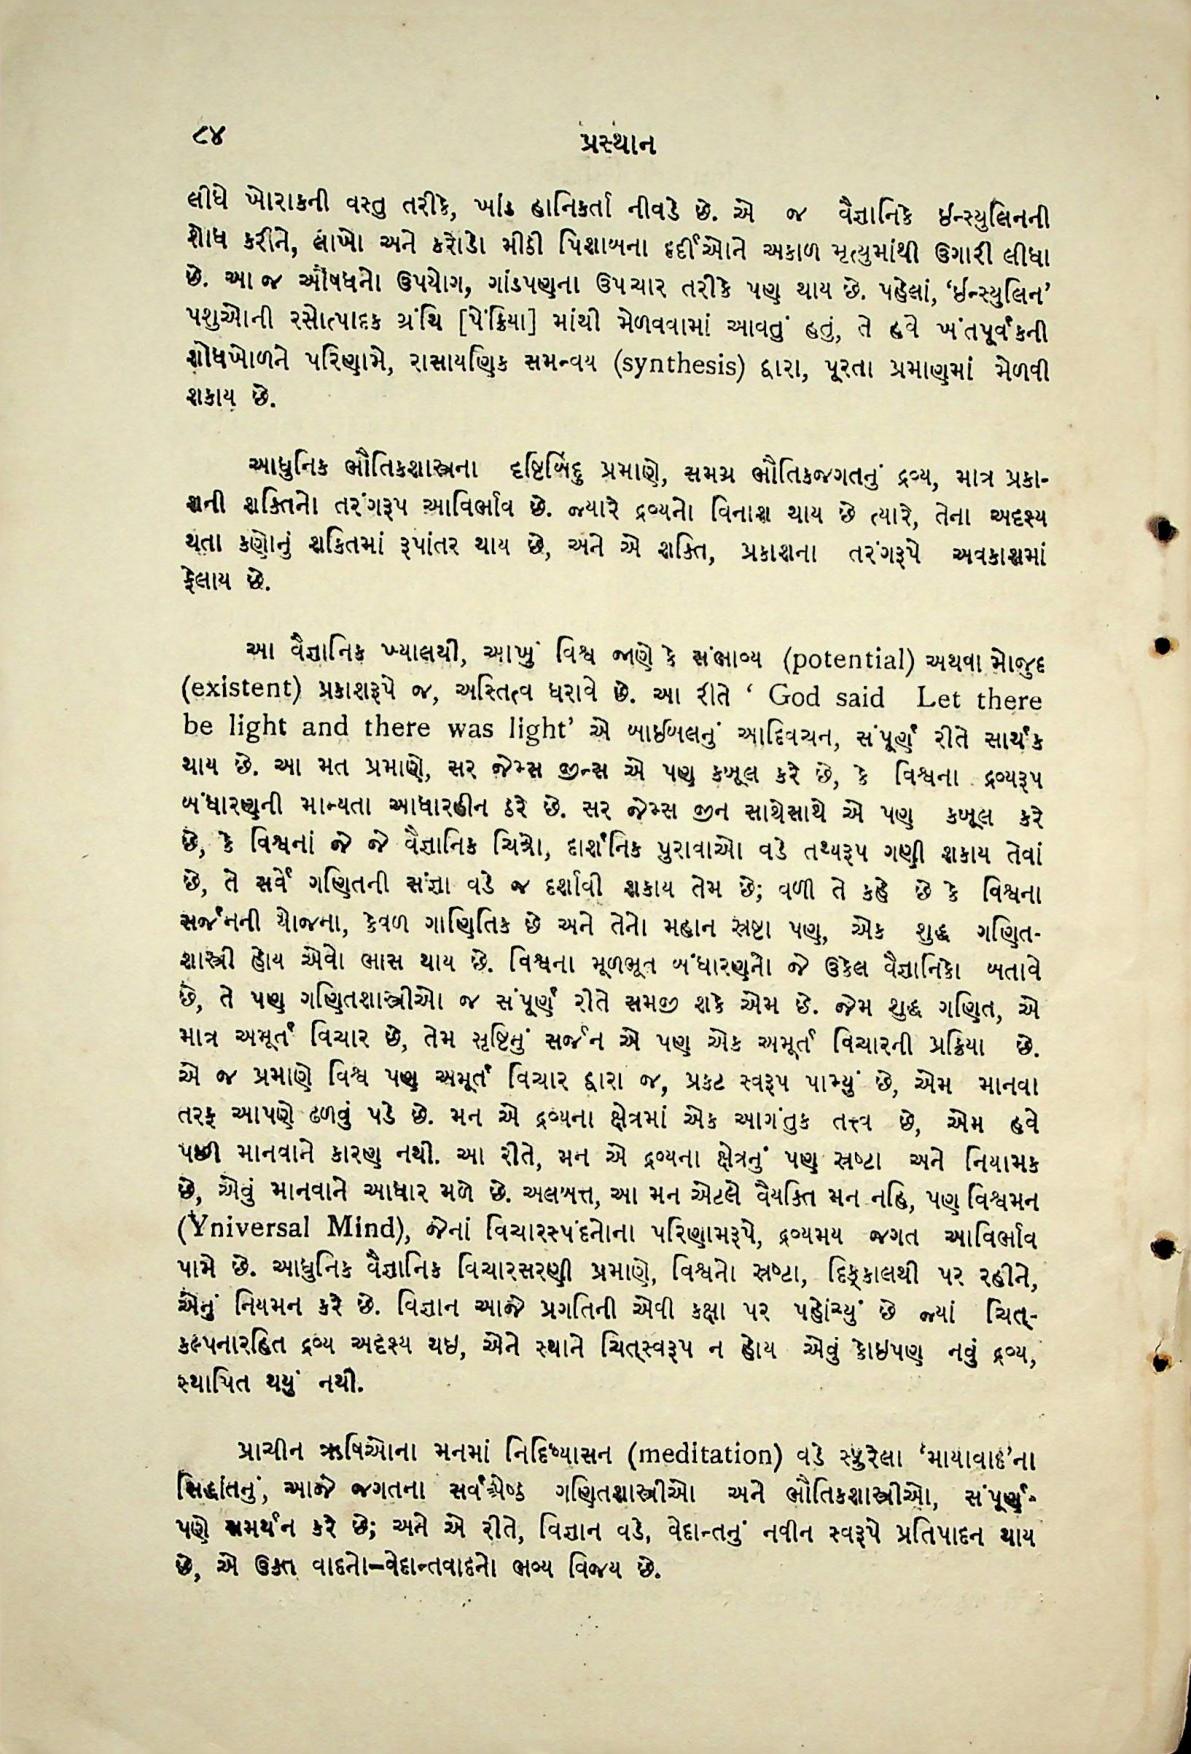 ૮૪
પ્રસ્થાન
લીધે ખોરાકની વસ્તુ તરીકે, ખાંડ હાનિકર્તા નીવડે છે. એ જ વૈજ્ઞાનિકે ઈન્સ્યુલિનની
શોધ કરીને, લાખો અને કરોડો મીઠી પિશાબના દર્દીઓને અકાળ મૃત્યુમાંથી ઉગારી લીધા
છે. આ જ ઔષધનો ઉપયોગ, ગાંડપણના ઉપચાર તરીકે પણ થાય છે. પહેલાં, ‘ઈન્સ્યુલિન’
પશુઓની રસોત્પાદક ગ્રંથિ [પેંક્રિયા] માંથી મેળવવામાં આવતું હતું, તે હવે ખંતપૂર્વકની
શોધખોળને પરિણામે, રાસાયણિક સમન્વય (synthesis) દ્વારા, પૂરતા પ્રમાણમાં મેળવી
શકાય છે.
આધુનિક ભૌતિકશાસ્ત્રના દૃષ્ટિબિંદુ પ્રમાણે, સમગ્ર ભૌતિકજગતનું દ્રવ્ય, માત્ર પ્રકા-
શની શક્તિનો તરંગરૂપ આવિર્ભાવ છે. જ્યારે દ્રવ્યનો વિનાશ થાય છે ત્યારે, તેના અદૃશ્ય
થતા કણોનું શક્તિમાં રૂપાંતર થાય છે, અને એ શક્તિ, પ્રકાશના તરંગરૂપે અવકાશમાં
ફેલાય છે.
આ વૈજ્ઞાનિક ખ્યાલથી, આખું વિશ્વ જાણે કે સંભાવ્ય (potential) અથવા મોજુદ
(existent) પ્રકાશરૂપે જ, અસ્તિત્વ ધરાવે છે. આ રીતે ‘ God said Let there
be light and there was light’ એ બાઈબલનું આદિવચન, સંપૂર્ણ રીતે સાર્થક
થાય છે. આ મત પ્રમાણે, સર જેમ્સ જીન્સ એ પણ કબૂલ કરે છે, કે વિશ્વના દ્રવ્યરૂપ
બંધારણની માન્યતા આધારહીન ઠરે છે. સર જેમ્સ જીન સાથેસાથે એ પણ કબૂલ કરે
છે, કે વિશ્વનાં જે જે વૈજ્ઞાનિક ચિત્રો, દાર્શનિક પુરાવાઓ વડે તથ્યરૂપ ગણી શકાય તેવાં
છે, તે સર્વે ગણિતની સંજ્ઞા વડે જ દર્શાવી શકાય તેમ છે; વળી તે કહે છે કે વિશ્વના
સર્જનની યોજના, કેવળ ગાણિતિક છે અને તેનો મહાન સ્રષ્ટા પણ, એક શુદ્ધ ગણિત-
શાસ્ત્રી હોય એવો ભાસ થાય છે. વિશ્વના મૂળભૂત બંધારણનો જે ઉકેલ વૈજ્ઞાનિકો બતાવે
છે, તે પણ ગણિતશાસ્ત્રીઓ જ સંપૂર્ણ રીતે સમજી શકે એમ છે. જેમ શુદ્ધ ગણિત, એ
માત્ર અમૂર્ત વિચાર છે, તેમ સૃષ્ટિનું સર્જન એ પણ એક અમૂર્ત વિચારની પ્રક્રિયા છે.
એ જ પ્રમાણે વિશ્વ પણ અમૂર્ત વિચાર દ્વારા જ, પ્રકટ સ્વરૂપ પામ્યું છે, એમ માનવા
તરફ આપણે ઢળવું પડે છે. મન એ દ્રવ્યના ક્ષેત્રમાં એક આગંતુક તત્ત્વ છે, એમ હવે
પછી માનવાને કારણ નથી. આ રીતે, મન એ દ્રવ્યના ક્ષેત્રનું પણ સ્રષ્ટા અને નિયામક
છે, એવું માનવાને આધાર મળે છે. અલબત્ત, આ મન એટલે વૈયક્તિ મન નહિ, પણ વિશ્વમન
(Yniversal Mind), જેનાં વિચારસ્પંદનોના પરિણામરૂપે, દ્રવ્યમય જગત આવિર્ભાવ
પામે છે. આધુનિક વૈજ્ઞાનિક વિચારસરણી પ્રમાણે, વિશ્વનો સ્રષ્ટા, દિક્કાલથી પર રહીને,
એનું નિયમન કરે છે. વિજ્ઞાન આજે પ્રગતિની એવી કક્ષા પર પહોંચ્યું છે જ્યાં ચિત્-
કલ્પનારહિત દ્રવ્ય અદૃશ્ય થઇ, એને સ્થાને ચિત્સ્વરૂપ ન હોય એવું કોઇપણ નવું દ્રવ્ય,
સ્થાપિત થયું નથી.
પ્રાચીન ઋષિઓના મનમાં નિદિધ્યાસન (meditation) વડે સ્ફુરેલા ‘માયાવાદ’ના
સિદ્ધાંતનું, આજે જગતના સર્વશ્રેષ્ઠ ગણિતશાસ્ત્રીઓ અને ભૌતિકશાસ્ત્રીઓ, સંપૂર્ણ-
પણે સમર્થન કરે છે; અને એ રીતે, વિજ્ઞાન વડે, વેદાન્તનું નવીન સ્વરૂપે પ્રતિપાદન થાય
છે, એ ઉક્ત વાદનો–વેદાન્તવાદનો ભવ્ય વિજય છે.